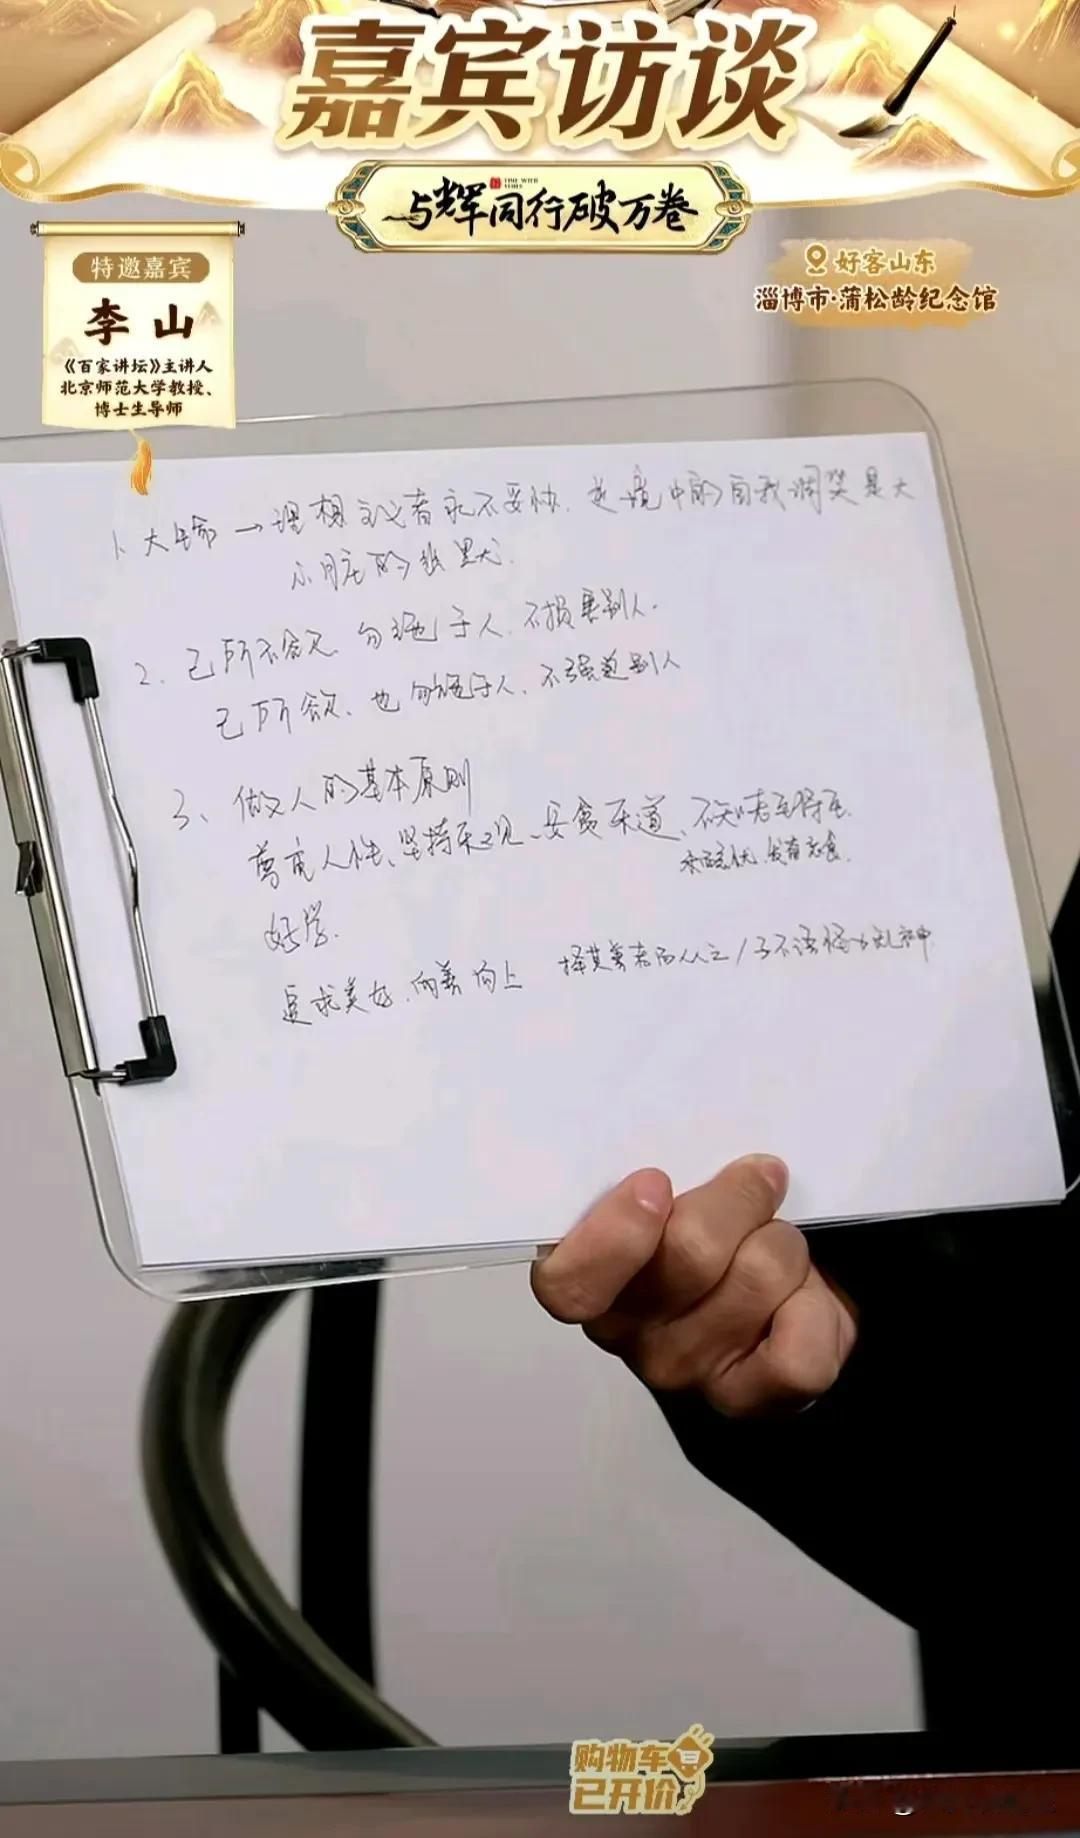 嘉宾访谈
TIME WITH
YUHUI
与辉同行破万卷
特邀嘉宾
李山
《百家讲坛》主讲人
北京师范大学教授、
博士生导师
好客山东
淄博市·蒲松龄纪念馆
1、大生命→理想主义者永不妥协.逆境中的自我调笑是大
的幽默.
2、己所不欲、勿施于人.不损害别人.
己所欲、也勿施于人、不强迫别人
3、做人的基本原则
尊重人性、坚持乐观、安贫乐道、
好学.
追求美好.向善向上 择其善者而从之/子不语怪力乱神
购物车
已开价